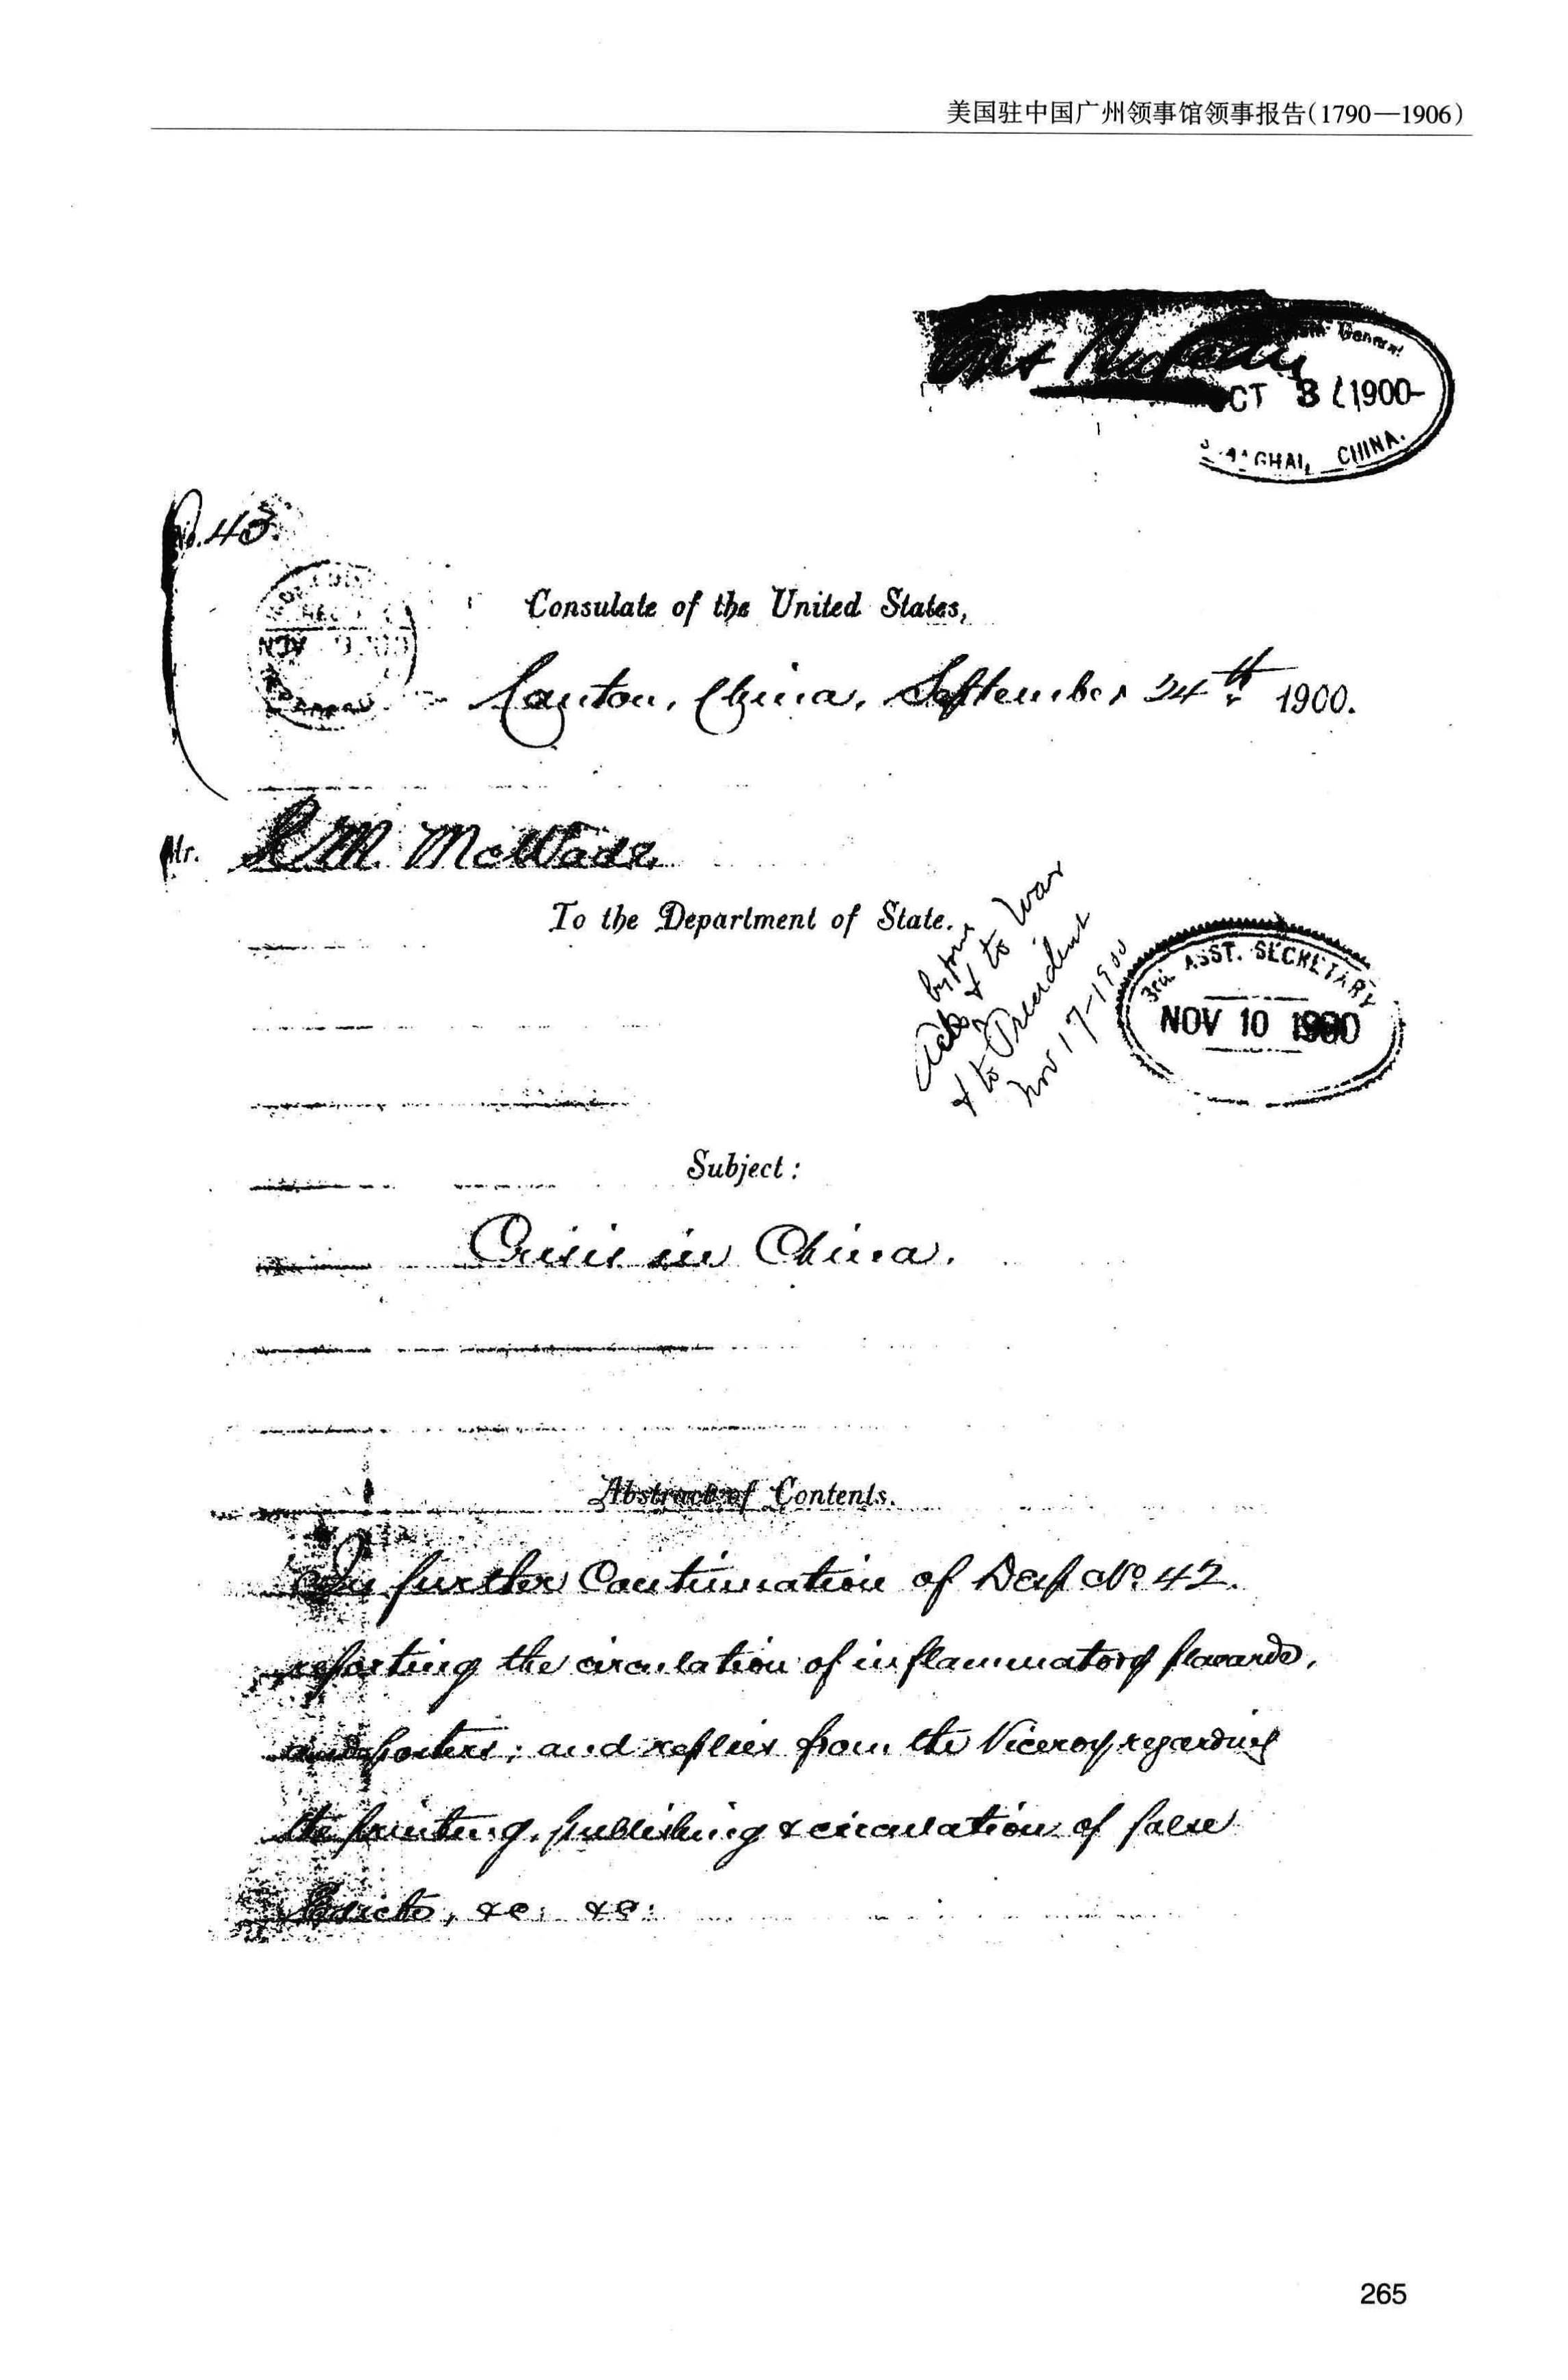 美国驻中国广州领事馆领事报告(1790—1906)
General
OCT 3 1900
SHANGHAI, CHINA.
No. 43.
NOV
Consulate of the United States,
Canton, China, September 24th 1900.
Mr. R. M. McWade
To the Department of State.
Ack by
& to War
& to President
Nov 17-1900
3rd ASST. SECRETARY
NOV 10 1900
Subject:
Crisis in China.
Abstract of Contents.
In further Continuation of Desp No. 42.
reporting the circulation of inflammatory placards,
and posters; and replies from the Viceroy regarding
the printing, publishing & circulation of false
Edicts, &c; &c:
265